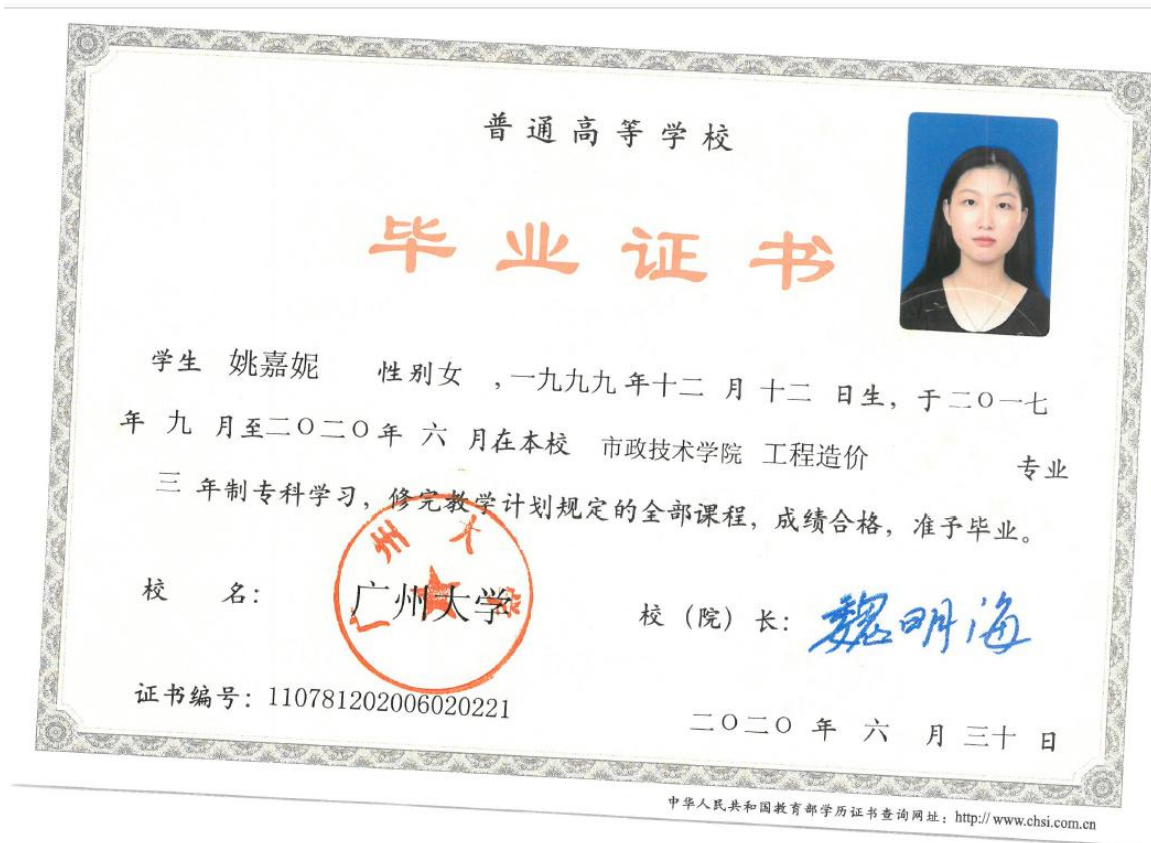 普通高等学校
毕业证书
学生 姚嘉妮 性别女 ,一九九九年十二月十二日生，于二〇一七
年九月至二〇二〇年六月在本校 市政技术学院 工程造价 专业
三年制专科学习，修完教学计划规定的全部课程，成绩合格，准予毕业。
广州大学
校 名： 广州大学 校（院）长： 魏明海
证书编号：110781202006020221 二〇二〇年六月三十日
中华人民共和国教育部学历证书查询网址：http://www.chsi.com.cn